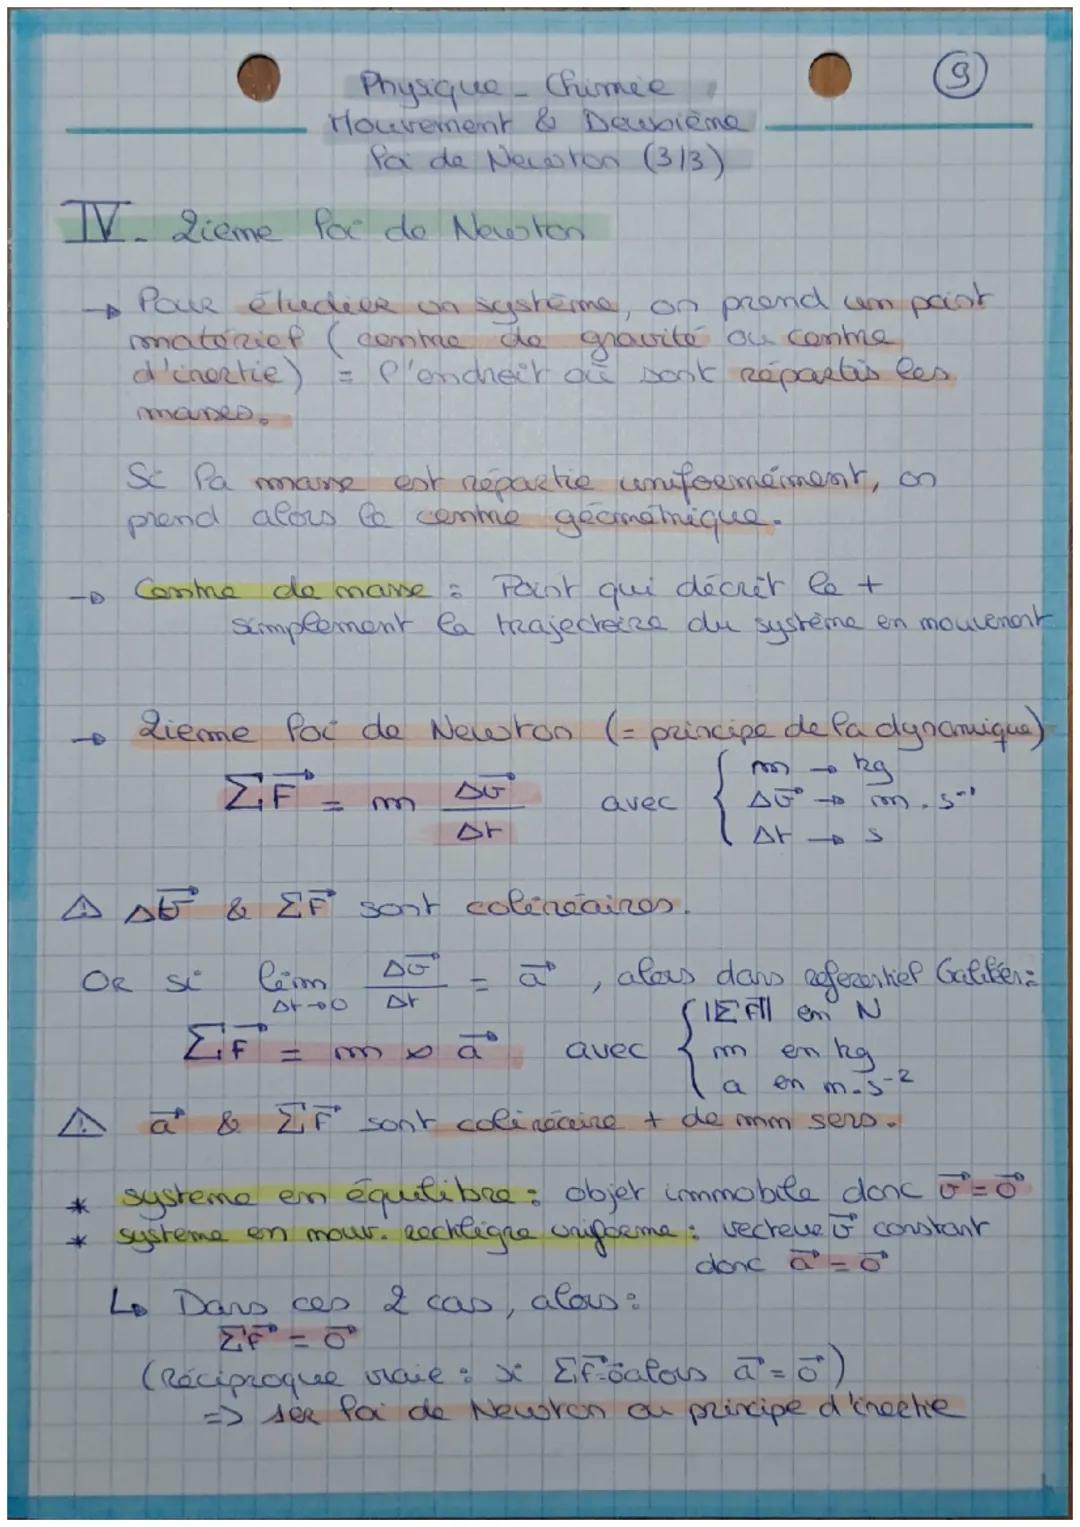 9
Physique - Chimie
Mouvement & Deuxième
loi de Newton (3/3)
IV - 2ieme loi de Newton
→ Pour étudier un système, on prend un point
matériel (centre de gravité ou centre
d'inertie) = l'endroit où sont répartis les
masses.
Si la masse est répartie uniformément, on
prend alors le centre géométrique.
→ Centre de masse : Point qui décrit le +
simplement la trajectoire du système en mouvement
→ 2ieme loi de Newton (= principe de la dynamique)
ΣF⃗ = m Δv⃗/Δt avec { m → kg
Δv⃗ → m.s⁻¹
Δt → s
⚠ Δv⃗ & ΣF⃗ sont colinéaires.
Or si lim Δt→0 Δv⃗/Δt = a⃗, alors dans referentiel Galiléen :
ΣF⃗ = m × a⃗ avec { ||ΣF⃗|| en N
m en kg
a en m.s⁻²
⚠ a⃗ & ΣF⃗ sont colinéaire + de mm sens.
* systeme en équilibre : objet immobile donc v⃗ = 0⃗
* système en mouv. rectiligne uniforme : vecteur v⃗ constant
donc a⃗ = 0⃗
↳ Dans ces 2 cas, alors :
ΣF⃗ = 0⃗
(Réciproque vraie : si ΣF⃗=0⃗ alors a⃗ = 0⃗)
=> 1er loi de Newton ou principe d'inertie